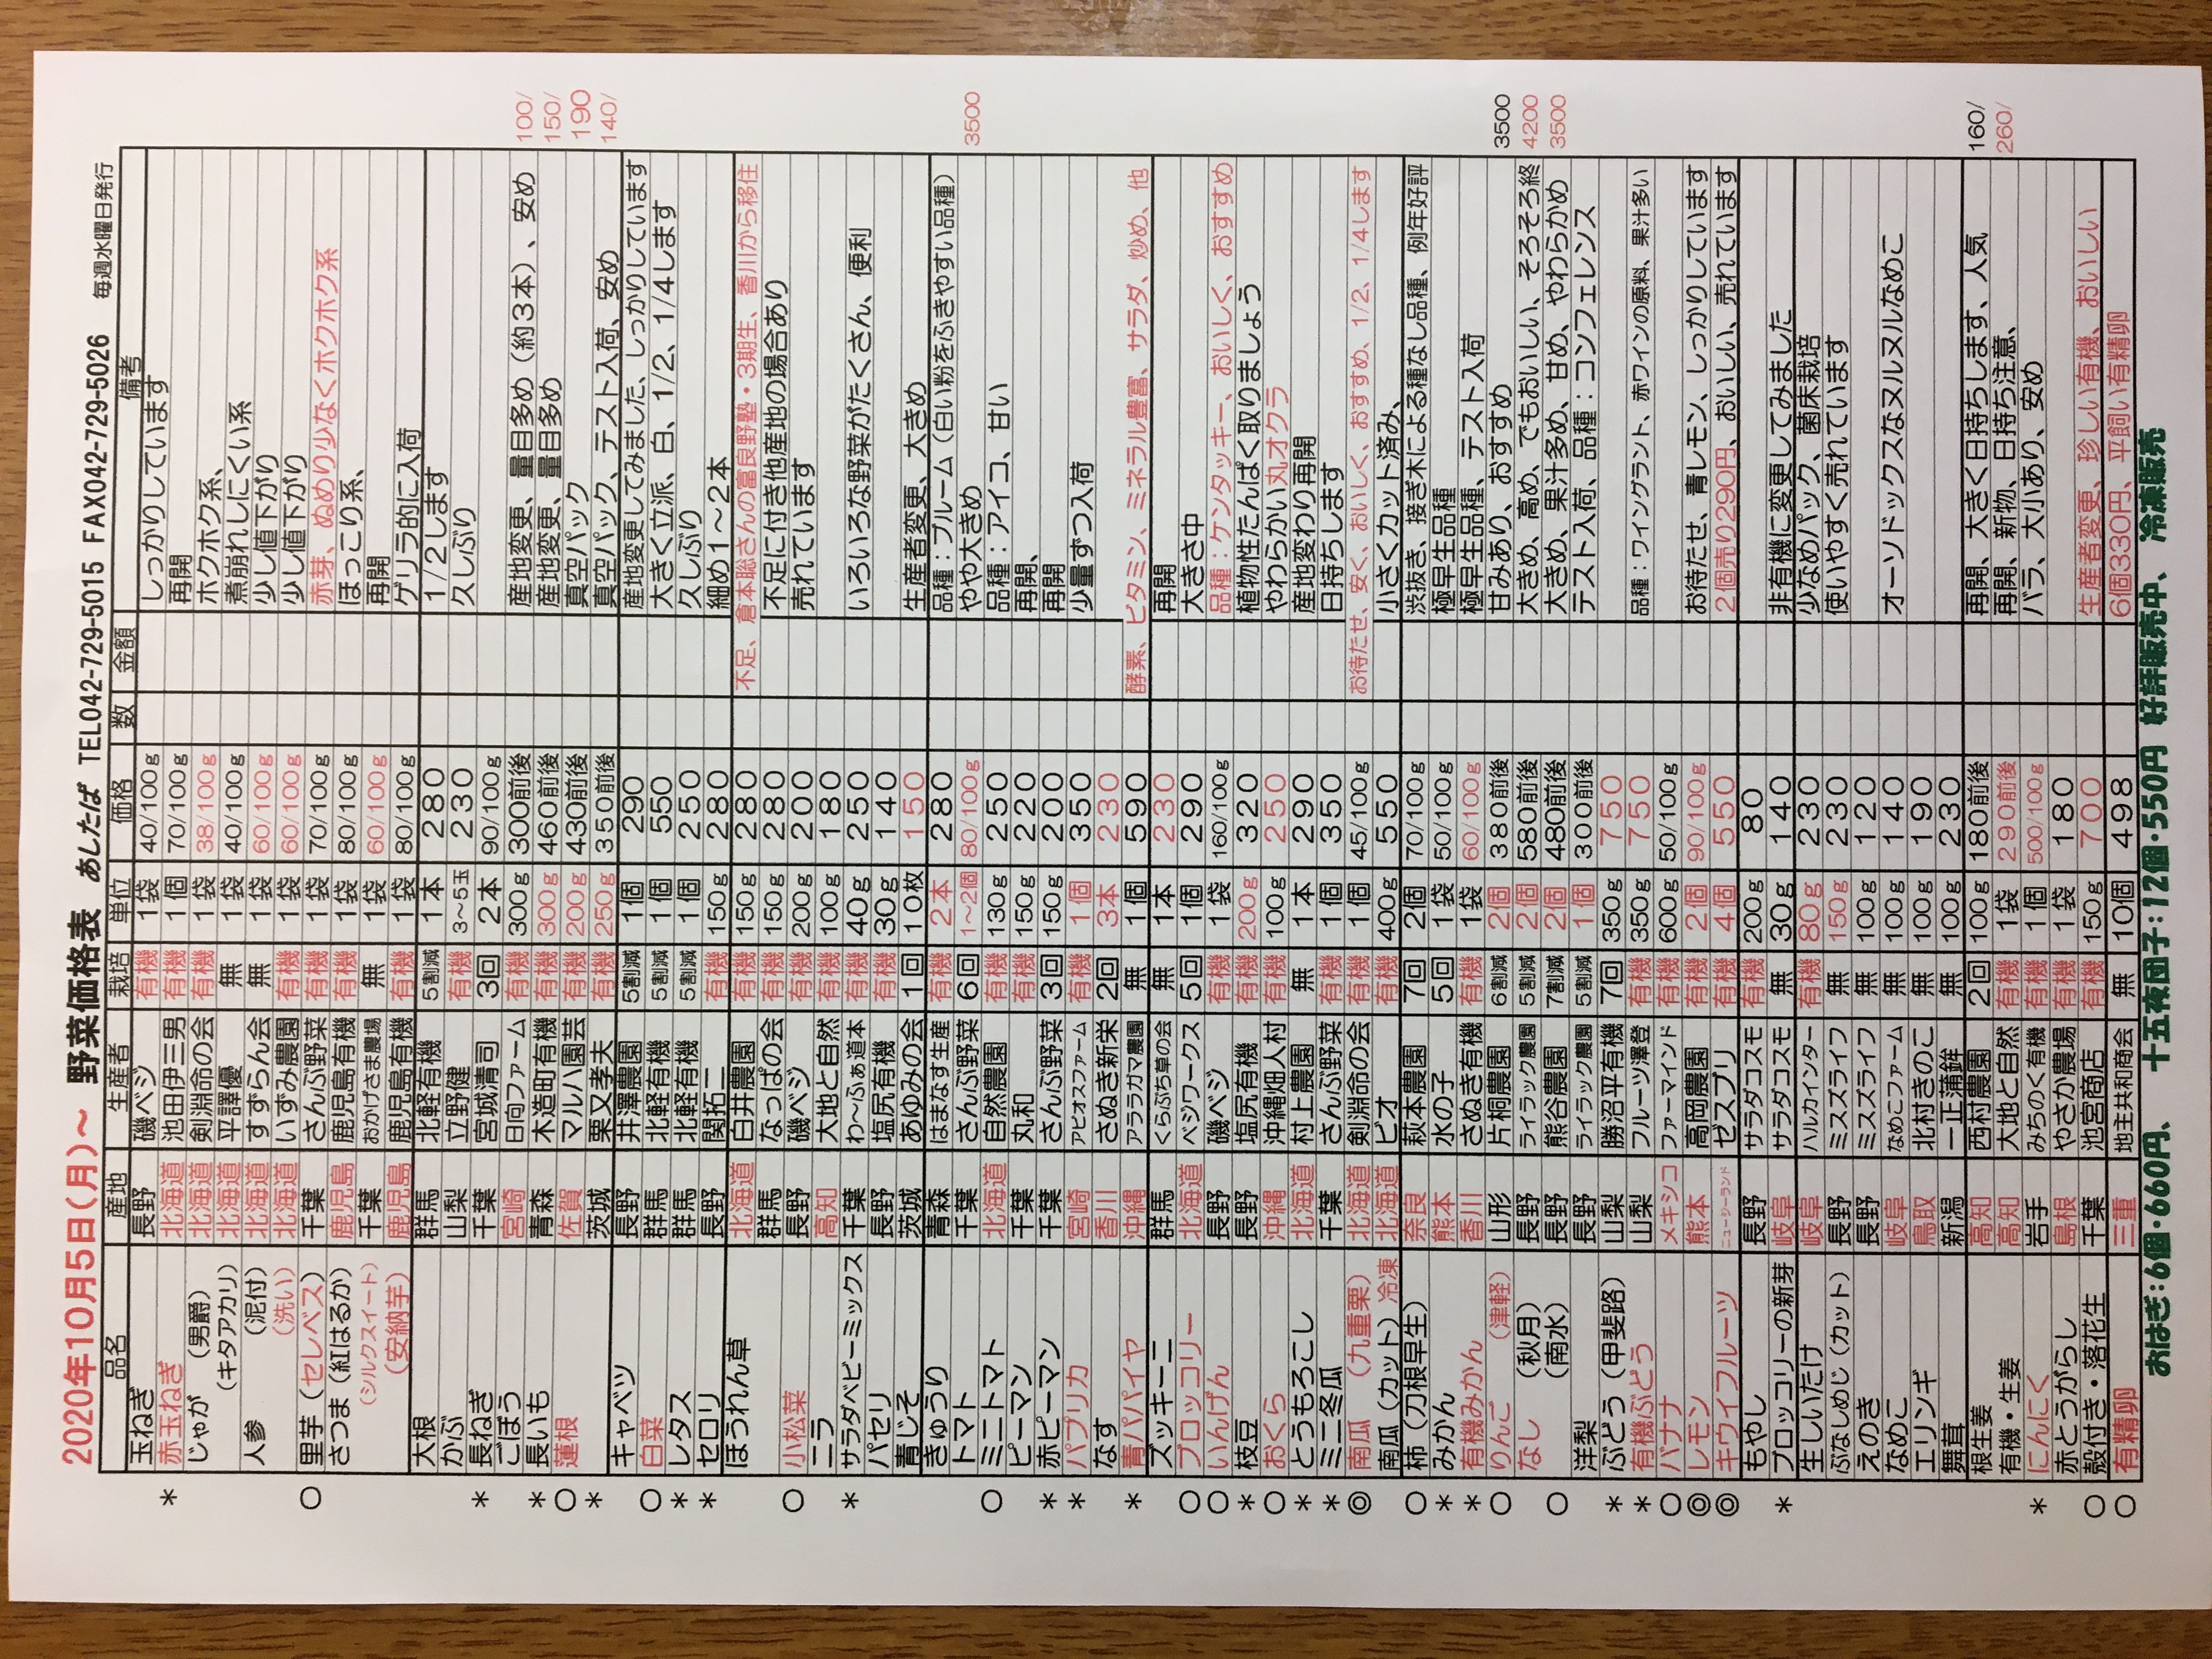 2020年10月5日(月)~ 野菜価格表 あしたば TEL042-729-5015 FAX042-729-5026 毎週水曜日発行
品名 産地 生産者 栽培 単位 価格 数 金額 備考
玉ねぎ 長野 磯ベジ 有機 1袋 40/100g しっかりしています
* 赤玉ねぎ 北海道 池田伊三男 有機 1個 70/100g 再開
じゃが (男爵) 北海道 剣淵命の会 有機 1袋 38/100g ホクホク系、
(キタアカリ) 北海道 平譯優 無 1袋 40/100g 煮崩れしにくい系
人参 (泥付) 北海道 すずらん会 無 1袋 60/100g 少し値下がり
(洗い) 北海道 いずみ農園 有機 1袋 60/100g 少し値下がり
○ 里芋(セレベス) 千葉 さんぶ野菜 有機 1袋 70/100g 赤芽、ぬめり少なくホクホク系
さつま(紅はるか) 鹿児島 鹿児島有機 有機 1袋 80/100g ほっこり系、
(シルクスイート) 千葉 おかげさま農場 無 1袋 60/100g 再開
(安納芋) 鹿児島 鹿児島有機 有機 1袋 80/100g ゲリラ的に入荷
大根 群馬 北軽有機 5割減 1本 280 1/2します
かぶ 山梨 立野健 有機 3~5玉 230 久しぶり
* 長ねぎ 千葉 宮城清司 3回 2本 90/100g
ごぼう 宮崎 日向ファーム 有機 300g 300前後 産地変更、量目多め(約3本)、安め 100/
* 長いも 青森 木造町有機 有機 300g 460前後 産地変更、量目多め 150/
○ 蓮根 佐賀 マルハ園芸 有機 200g 430前後 真空パック 190
* 茨城 栗又孝夫 有機 250g 350前後 真空パック、テスト入荷、安め 140/
キャベツ 長野 井澤農園 5割減 1個 290 産地変更してみました、しっかりしています
○ 白菜 群馬 北軽有機 5割減 1個 550 大きく立派、白、1/2、1/4します
* レタス 群馬 北軽有機 5割減 1個 250 久しぶり
* セロリ 長野 関拓二 有機 150g 280 細め1~2本
ほうれん草 北海道 白井農園 有機 150g 280 不足、倉本聡さんの富良野塾・3期生、香川から移住
群馬 なっぱの会 有機 150g 280 不足に付き他産地の場合あり
○ 小松菜 長野 磯ベジ 有機 200g 200 売れています
ニラ 高知 大地と自然 有機 100g 180
* サラダベビーミックス 千葉 わ~ふぁ道本 有機 40g 250 いろいろな野菜がたくさん、便利
パセリ 長野 塩尻有機 有機 30g 140
青じそ 茨城 あゆみの会 1回 10枚 150 生産者変更、大きめ
きゅうり 青森 はまなす生産 有機 2本 280 品種:ブルーム(白い粉をふきやすい品種)
トマト 千葉 さんぶ野菜 6回 1~2個 80/100g やや大きめ 3500
○ ミニトマト 北海道 自然農園 有機 130g 250 品種:アイコ、甘い
ピーマン 千葉 丸和 有機 150g 220 再開、
* 赤ピーマン 千葉 さんぶ野菜 3回 150g 200 再開
* パプリカ 宮崎 アビオスファーム 有機 1個 350 少量ずつ入荷
なす 香川 さぬき新栄 2回 3本 230
* 青パパイヤ 沖縄 アララガマ農園 無 1個 590 酵素、ビタミン、ミネラル豊富、サラダ、炒め、他
ズッキーニ 群馬 くらぶち草の会 無 1本 230 再開
○ ブロッコリー 北海道 ベジワークス 5回 1個 290 大きさ中
○ いんげん 長野 磯ベジ 有機 1袋 160/100g 品種:ケンタッキー、おいしく、おすすめ
* 枝豆 長野 塩尻有機 有機 200g 320 植物性たんぱく取りましょう
○ おくら 沖縄 沖縄畑人村 有機 100g 250 やわらかい丸オクラ
* とうもろこし 北海道 村上農園 無 1本 290 産地変わり再開
* ミニ冬瓜 千葉 さんぶ野菜 有機 1個 350 日持ちします
◎ 南瓜 (九重栗) 北海道 剣淵命の会 有機 1個 45/100g お待たせ、安く、おいしく、おすすめ、1/2、1/4します
南瓜(カット)冷凍 北海道 ビオ 有機 400g 550 小さくカット済み、
○ 柿(刀根早生) 奈良 萩本農園 7回 2個 70/100g 渋抜き、接ぎ木による種なし品種、例年好評
* みかん 熊本 水の子 5回 1袋 50/100g 極早生品種
* 有機みかん 香川 さぬき有機 有機 1袋 60/100g 極早生品種、テスト入荷
○ りんご (津軽) 山形 片桐農園 6割減 2個 380前後 甘みあり、おすすめ 3500
なし (秋月) 長野 ライラック農園 5割減 2個 580前後 大きめ、高め、でもおいしい、そろそろ終 4200
○ (南水) 長野 熊谷農園 7割減 2個 480前後 大きめ、果汁多め、甘め、やわらかめ 3500
洋梨 長野 ライラック農園 5割減 1個 300前後 テスト入荷、品種:コンフェレンス
* ぶどう(甲斐路) 山梨 勝沼平有機 7回 350g 750
* 有機ぶどう 山梨 フルーツ澤登 有機 350g 750 品種:ワイングラント、赤ワインの原料、果汁多い
○ バナナ メキシコ ファーマインド 有機 600g 50/100g
◎ レモン 熊本 高岡農園 有機 2個 90/100g お待たせ、青レモン、しっかりしています
◎ キウイフルーツ ニュージーランド ゼスプリ 有機 4個 550 2個売り290円、おいしい、売れています
もやし 長野 サラダコスモ 有機 200g 80
* ブロッコリーの新芽 岐阜 サラダコスモ 無 30g 140 非有機に変更してみました
生しいたけ 岐阜 ハルカインター 有機 80g 230 少なめパック、菌床栽培
ぶなしめじ(カット) 長野 ミスズライフ 無 150g 230 使いやすく売れています
えのき 長野 ミスズライフ 無 100g 120
なめこ 岐阜 なめこファーム 無 100g 140 オーソドックスなヌルヌルなめこ
エリンギ 鳥取 北村きのこ 無 100g 190
舞茸 新潟 一正蒲鉾 無 100g 230
根生姜 高知 西村農園 2回 100g 180前後 再開、大きく日持ちします、人気 160/
有機・生姜 高知 大地と自然 有機 1袋 290前後 再開、新物、日持ち注意、 260/
* にんにく 岩手 みちのく有機 有機 1個 500/100g バラ、大小あり、安め
赤とうがらし 島根 やさか農場 有機 1袋 180
○ 殻付き・落花生 千葉 池宮商店 有機 150g 700 生産者変更、珍しい有機、おいしい
○ 有精卵 三重 地主共和商会 無 10個 498 6個330円、平飼い有精卵
おはぎ:6個・660円、 十五夜団子:12個・550円 好評販売中、冷凍販売